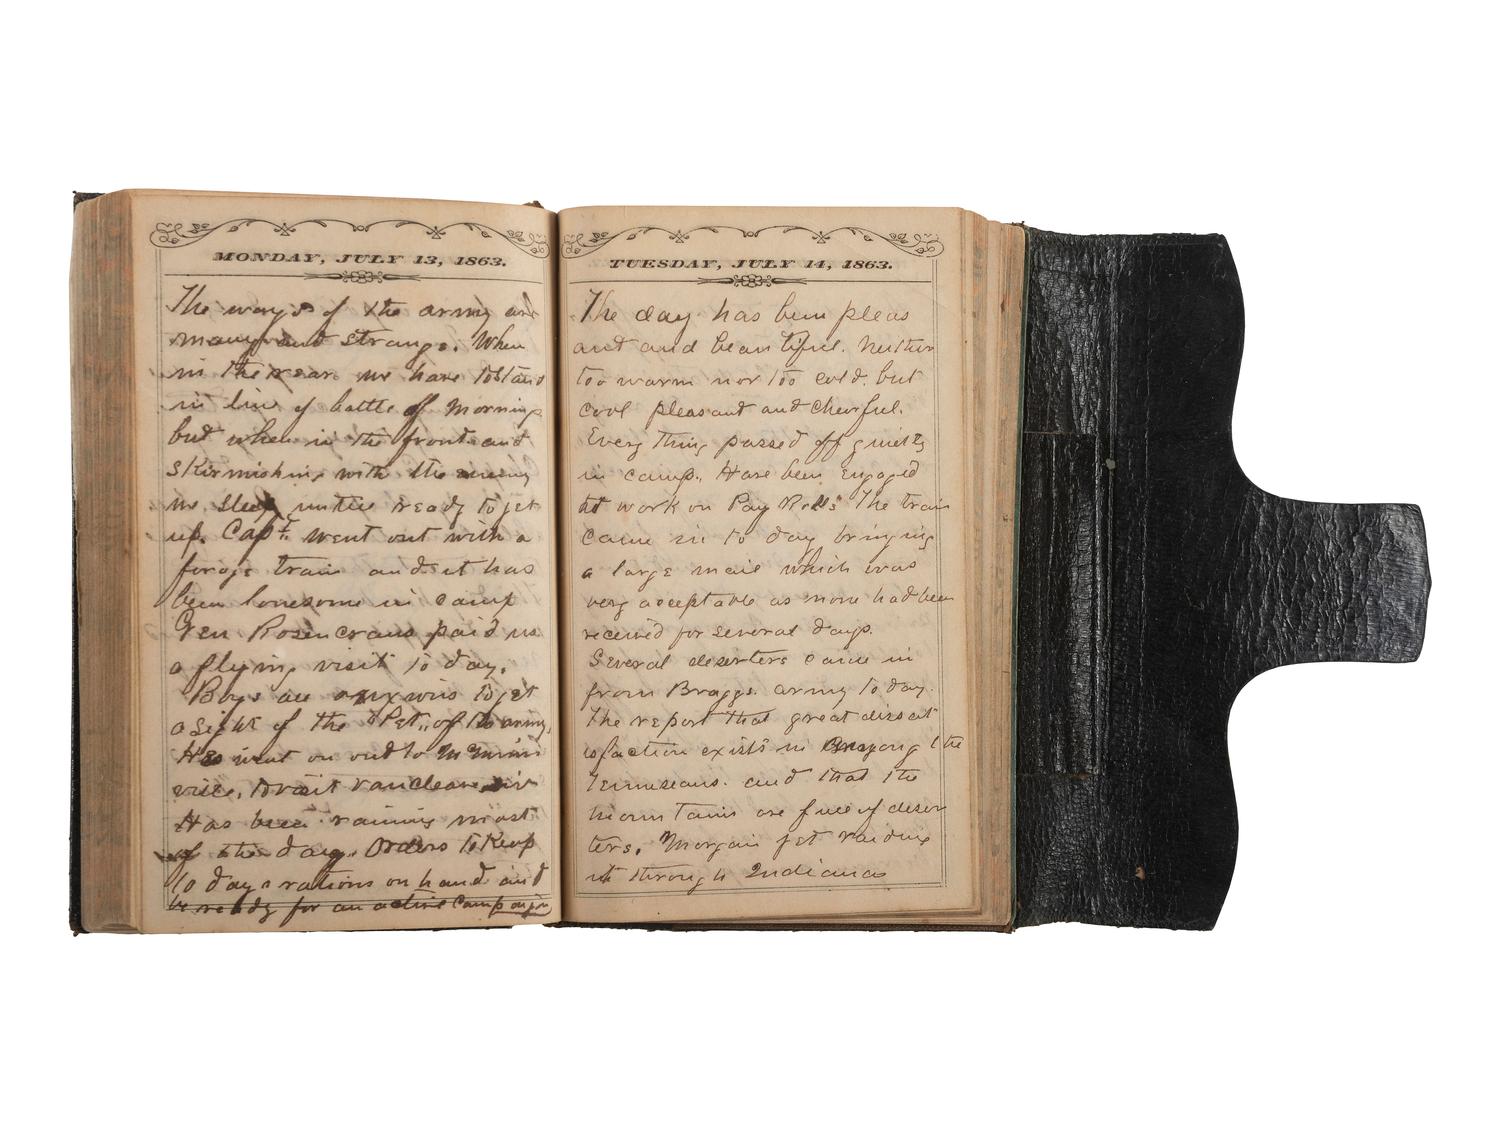 MONDAY, JULY 13, 1863.
The ways of the army are
many and strange. When
in the rear we have to stand
in line of battle of Morning
but when in the front and
skirmishing with the enemy
we sleep untill ready to get
up. Capt. went out with a
forage train and it has
been lonesome in camp
Gen Rosencrans paid us
a flying visit to day.
Boys are anxious to get
a sight of the "Pet" of the army,
He went on out to McMinn
ville, to visit Vancleave
Has been raining most
of the day. Orders to Keep
10 days rations on hand and
be ready for an active Campaign
TUESDAY, JULY 14, 1863.
The day has been pleas
ant and beautiful. Neither
too warm nor too cold. but
cool pleasant and cheerful.
Every thing passed off quietly
in camp. Have been engaged
at work on Pay Rolls The train
came in to day bringing
a large mail which was
very acceptable as none had been
received for several days.
Several deserters came in
from Braggs army to day.
The report that great dissat
isfaction exists in among the
Tennesseans. and that the
mountains are full of deser
ters. Morgan yet raiding
it through Indiana